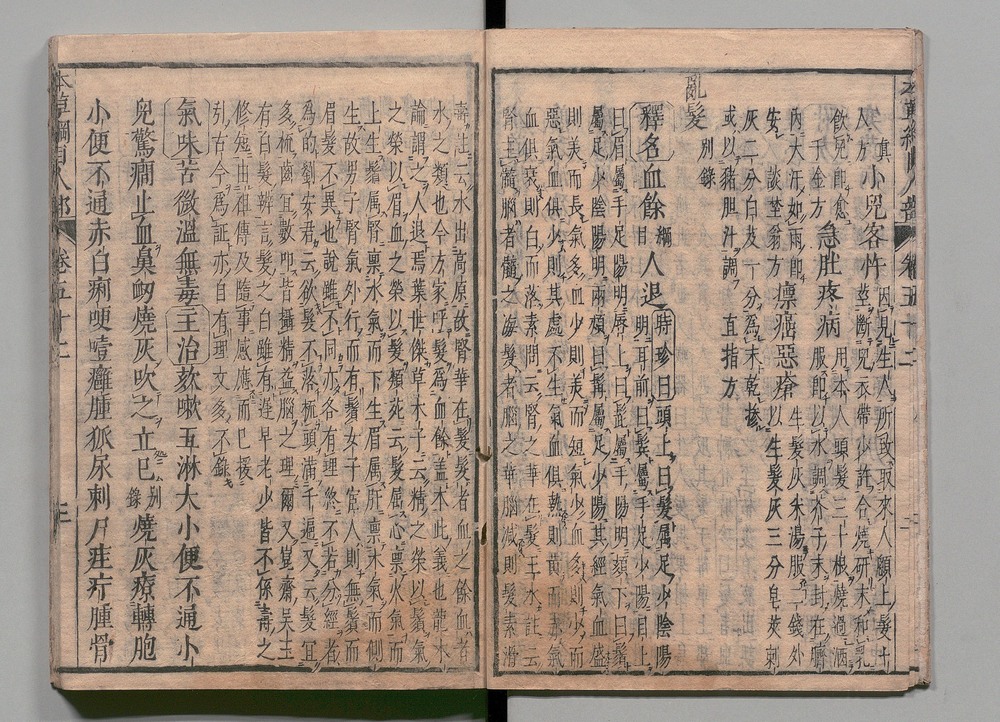 本草綱目人部 卷五十二
眞小兒客忤 因見生人所致取來人頭上髮十
人方 莖斷兒衣帶少許合燒研末和乳
飲兒即愈 急肚疼病 用本人頭髮三十根燒過酒
千金方 服即以水調芥子末封在臍
內大汗如雨即 瘭疽惡瘡 生髮灰米湯服二錢外
安 談埜翁方 以生髮灰三分皂莢刺
灰二分白及一分爲末乾摻
或以猪胆汁調 直指方
亂髮 別錄
釋名血餘綱目人退 時珍曰頭上曰髮屬足少陰陽
明耳前曰鬢屬手足少陽目上
曰眉屬手足陽明唇上曰髭屬手陽明頦下曰鬚
屬足少陰陽明兩頰曰髯屬足少陽其經氣血盛
則美而長氣多血少則美而短氣少血多則少而
惡氣血俱少則其處不生氣血俱熱則黃而赤氣
血俱衰則白而落素問云腎之華在髮王氷註云
腎主髓腦者髓之海髮者腦之華腦減則髮素滑
壽註云水出高原故腎華在髮髮者血之餘血者
水之類也今方家呼髮爲血餘蓋本此義也龍木
論謂之人退焉葉世傑草木子云精之榮以鬚氣
之榮以眉血之榮以髮類苑云髮屬心稟火氣而
上生鬚屬腎稟水氣而下生眉屬肝稟木氣而側
生故男子腎氣外行而有鬚女子宦人則無鬚而
眉髮不異也說雖不同亦各有理終不若分經者
爲的劉安君云欲髮不落梳頭滿千遍又云髮宜
多梳齒宜數叩皆攝精益腦之理爾又崑齋吳玉
有白髮辨言髮之白雖有遲早老少皆不係壽之
修短由祖傳及隨事感應而已援
引古今爲証亦自有理文多不錄
氣味苦微溫無毒主治欬嗽五淋大小便不通小
兒驚癎止血鼻衄燒灰吹之立已別錄燒灰療轉胞
小便不通赤白痢哽噎癰腫狐尿刺尸疰疔腫骨
本草綱目人部 卷五十二 三